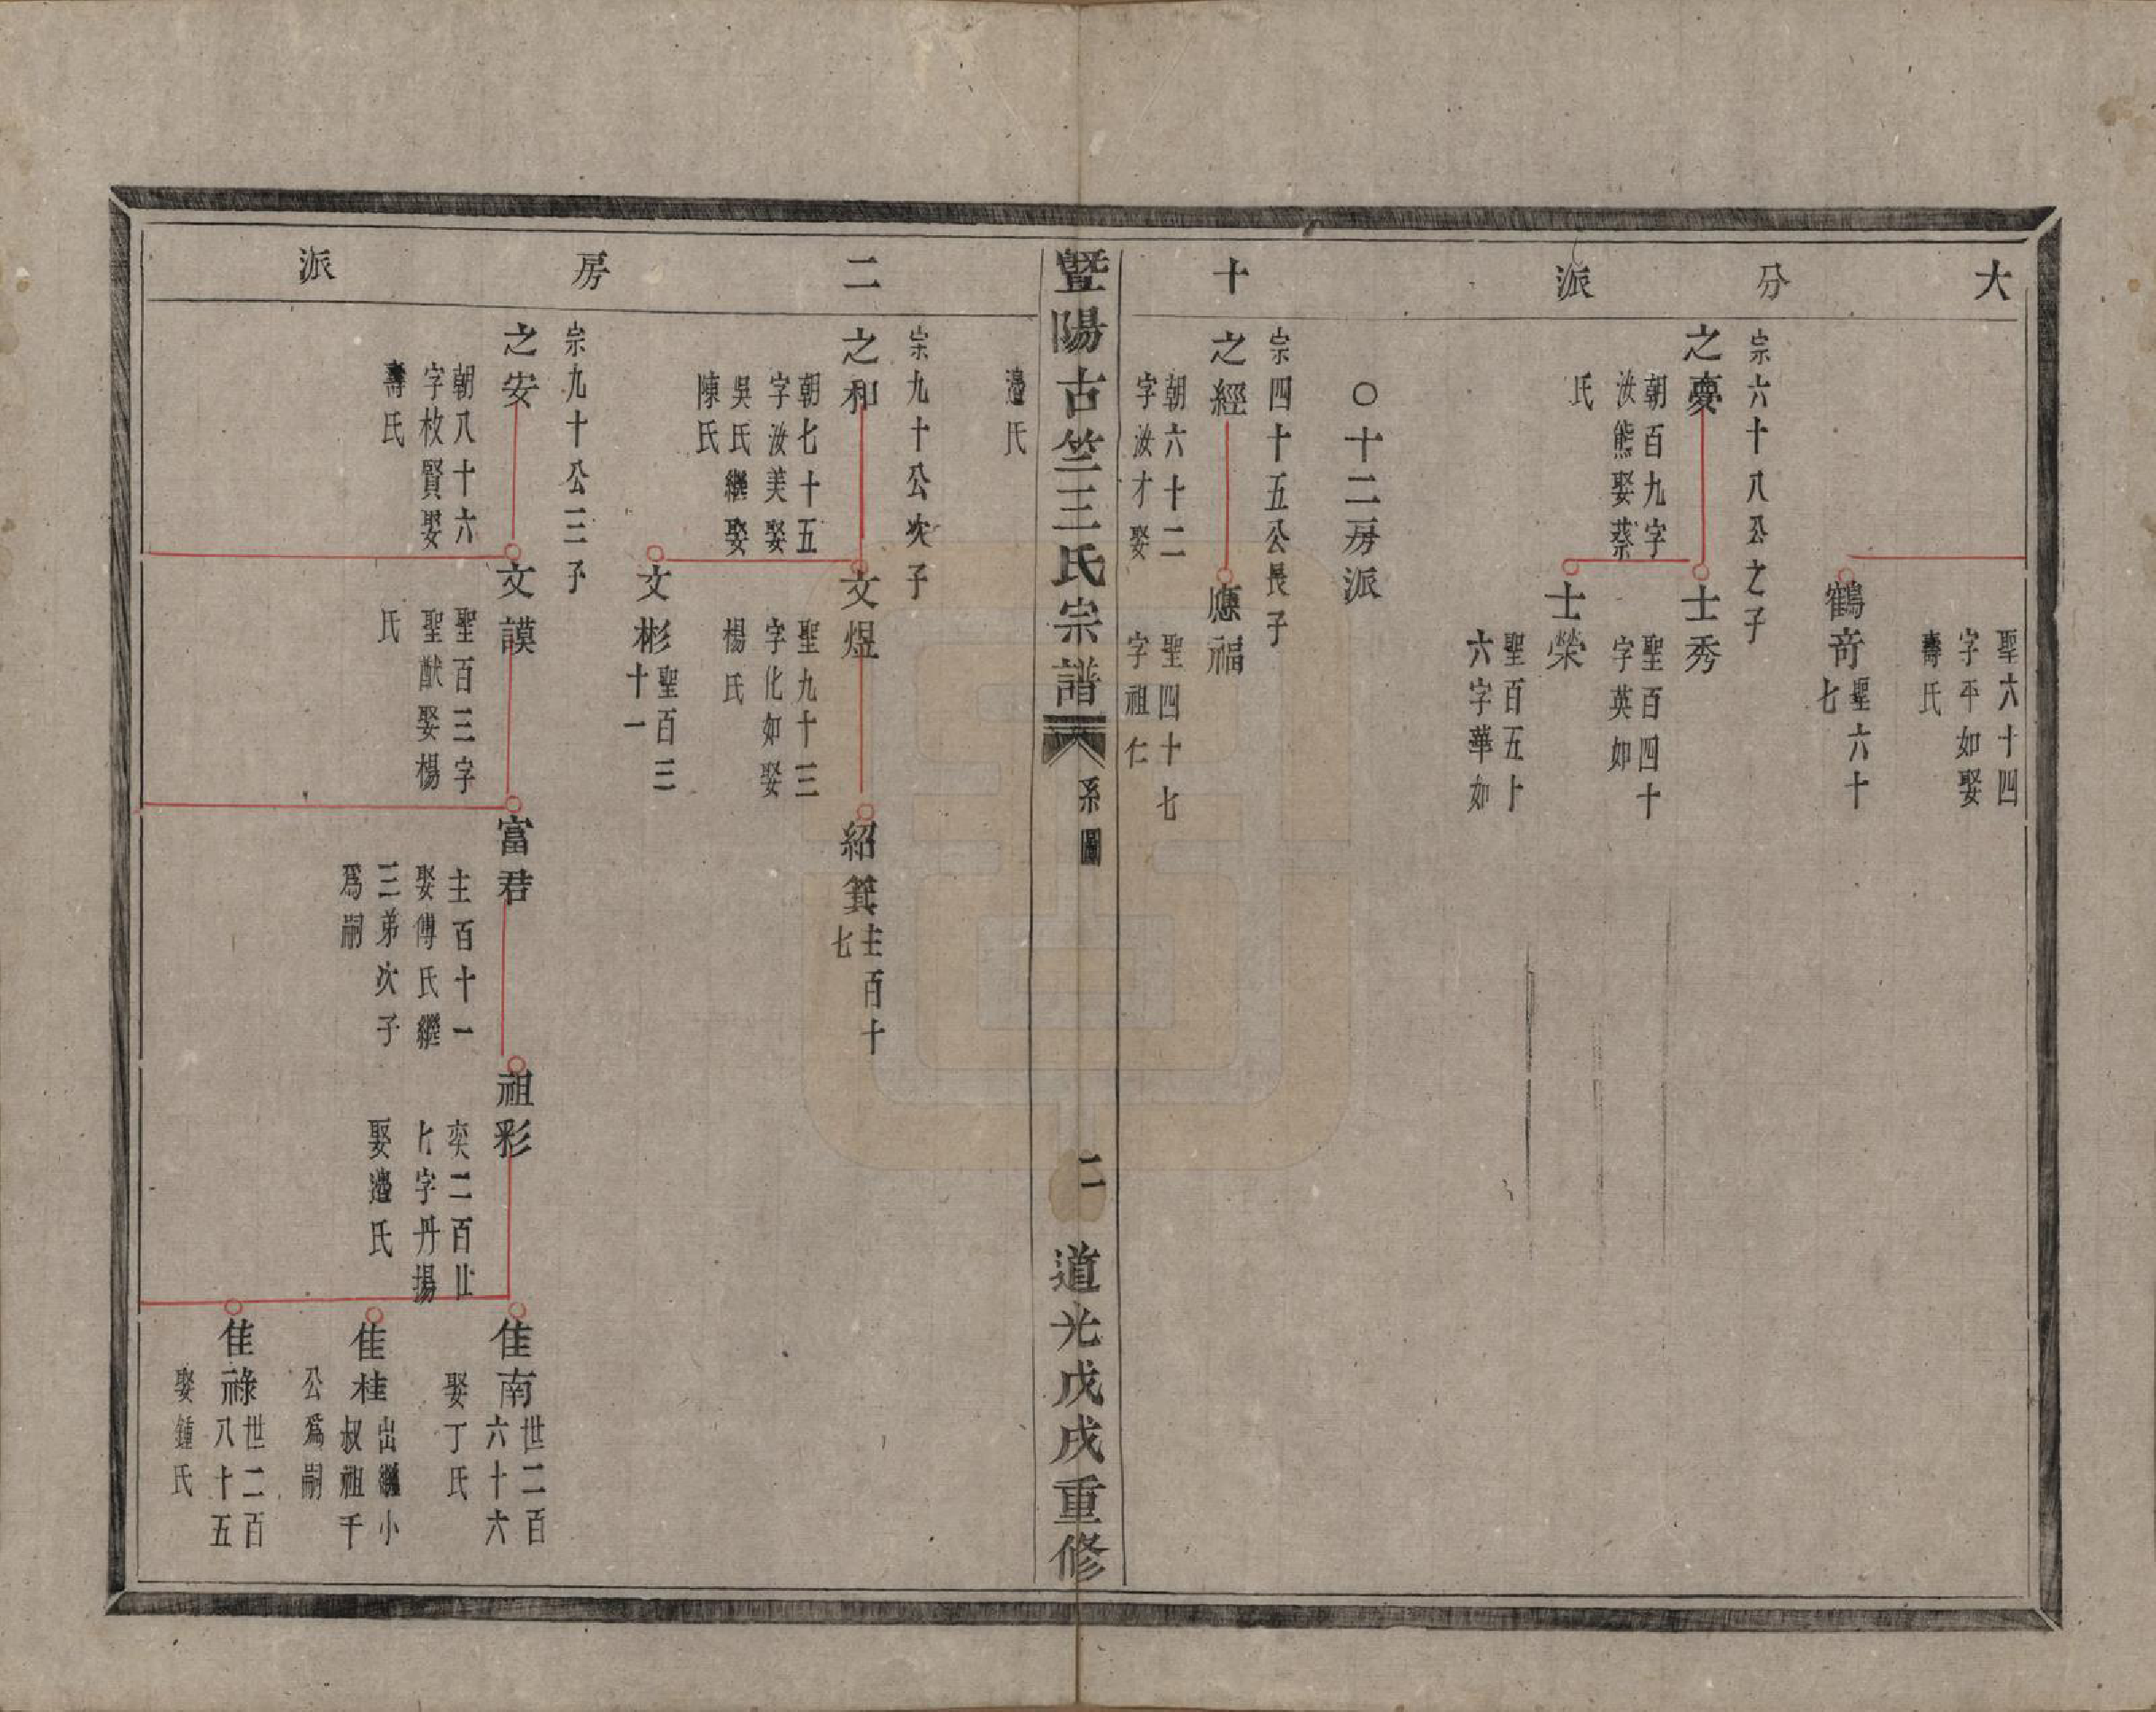 大分派
聖六十四
字平如娶
壽氏
鶴奇
聖六十
七
宗六十八公之子
之夢
朝百九字
汝熊娶蔡
氏
士秀
聖百四十
字英如
士榮
聖百五十
六字華如
〇十二房派
十
宗四十五公長子
之經
朝六十二
字汝才娶
應福
聖四十七
字祖仁
暨陽古竺三氏宗譜
系圖
二
道光戊戌重修
二房派
邊氏
宗九十公次子
之和
朝七十五
字汝美娶
吳氏繼娶
陳氏
文煜
聖九十三
字化如娶
楊氏
紹箕
主百十
七
文彬
聖百三
十一
宗九十公三子
之安
朝八十六
字枚賢娶
壽氏
文謨
聖百三字
聖猷娶楊
氏
富君
主百十一
娶傅氏繼
三弟次子
爲嗣
祖彩
奕二百廿
七字丹揚
娶邊氏
佳南
世二百
六十六
娶丁氏
佳桂
出繼小
叔祖千
公爲嗣
佳祿
世二百
八十五
娶鍾氏